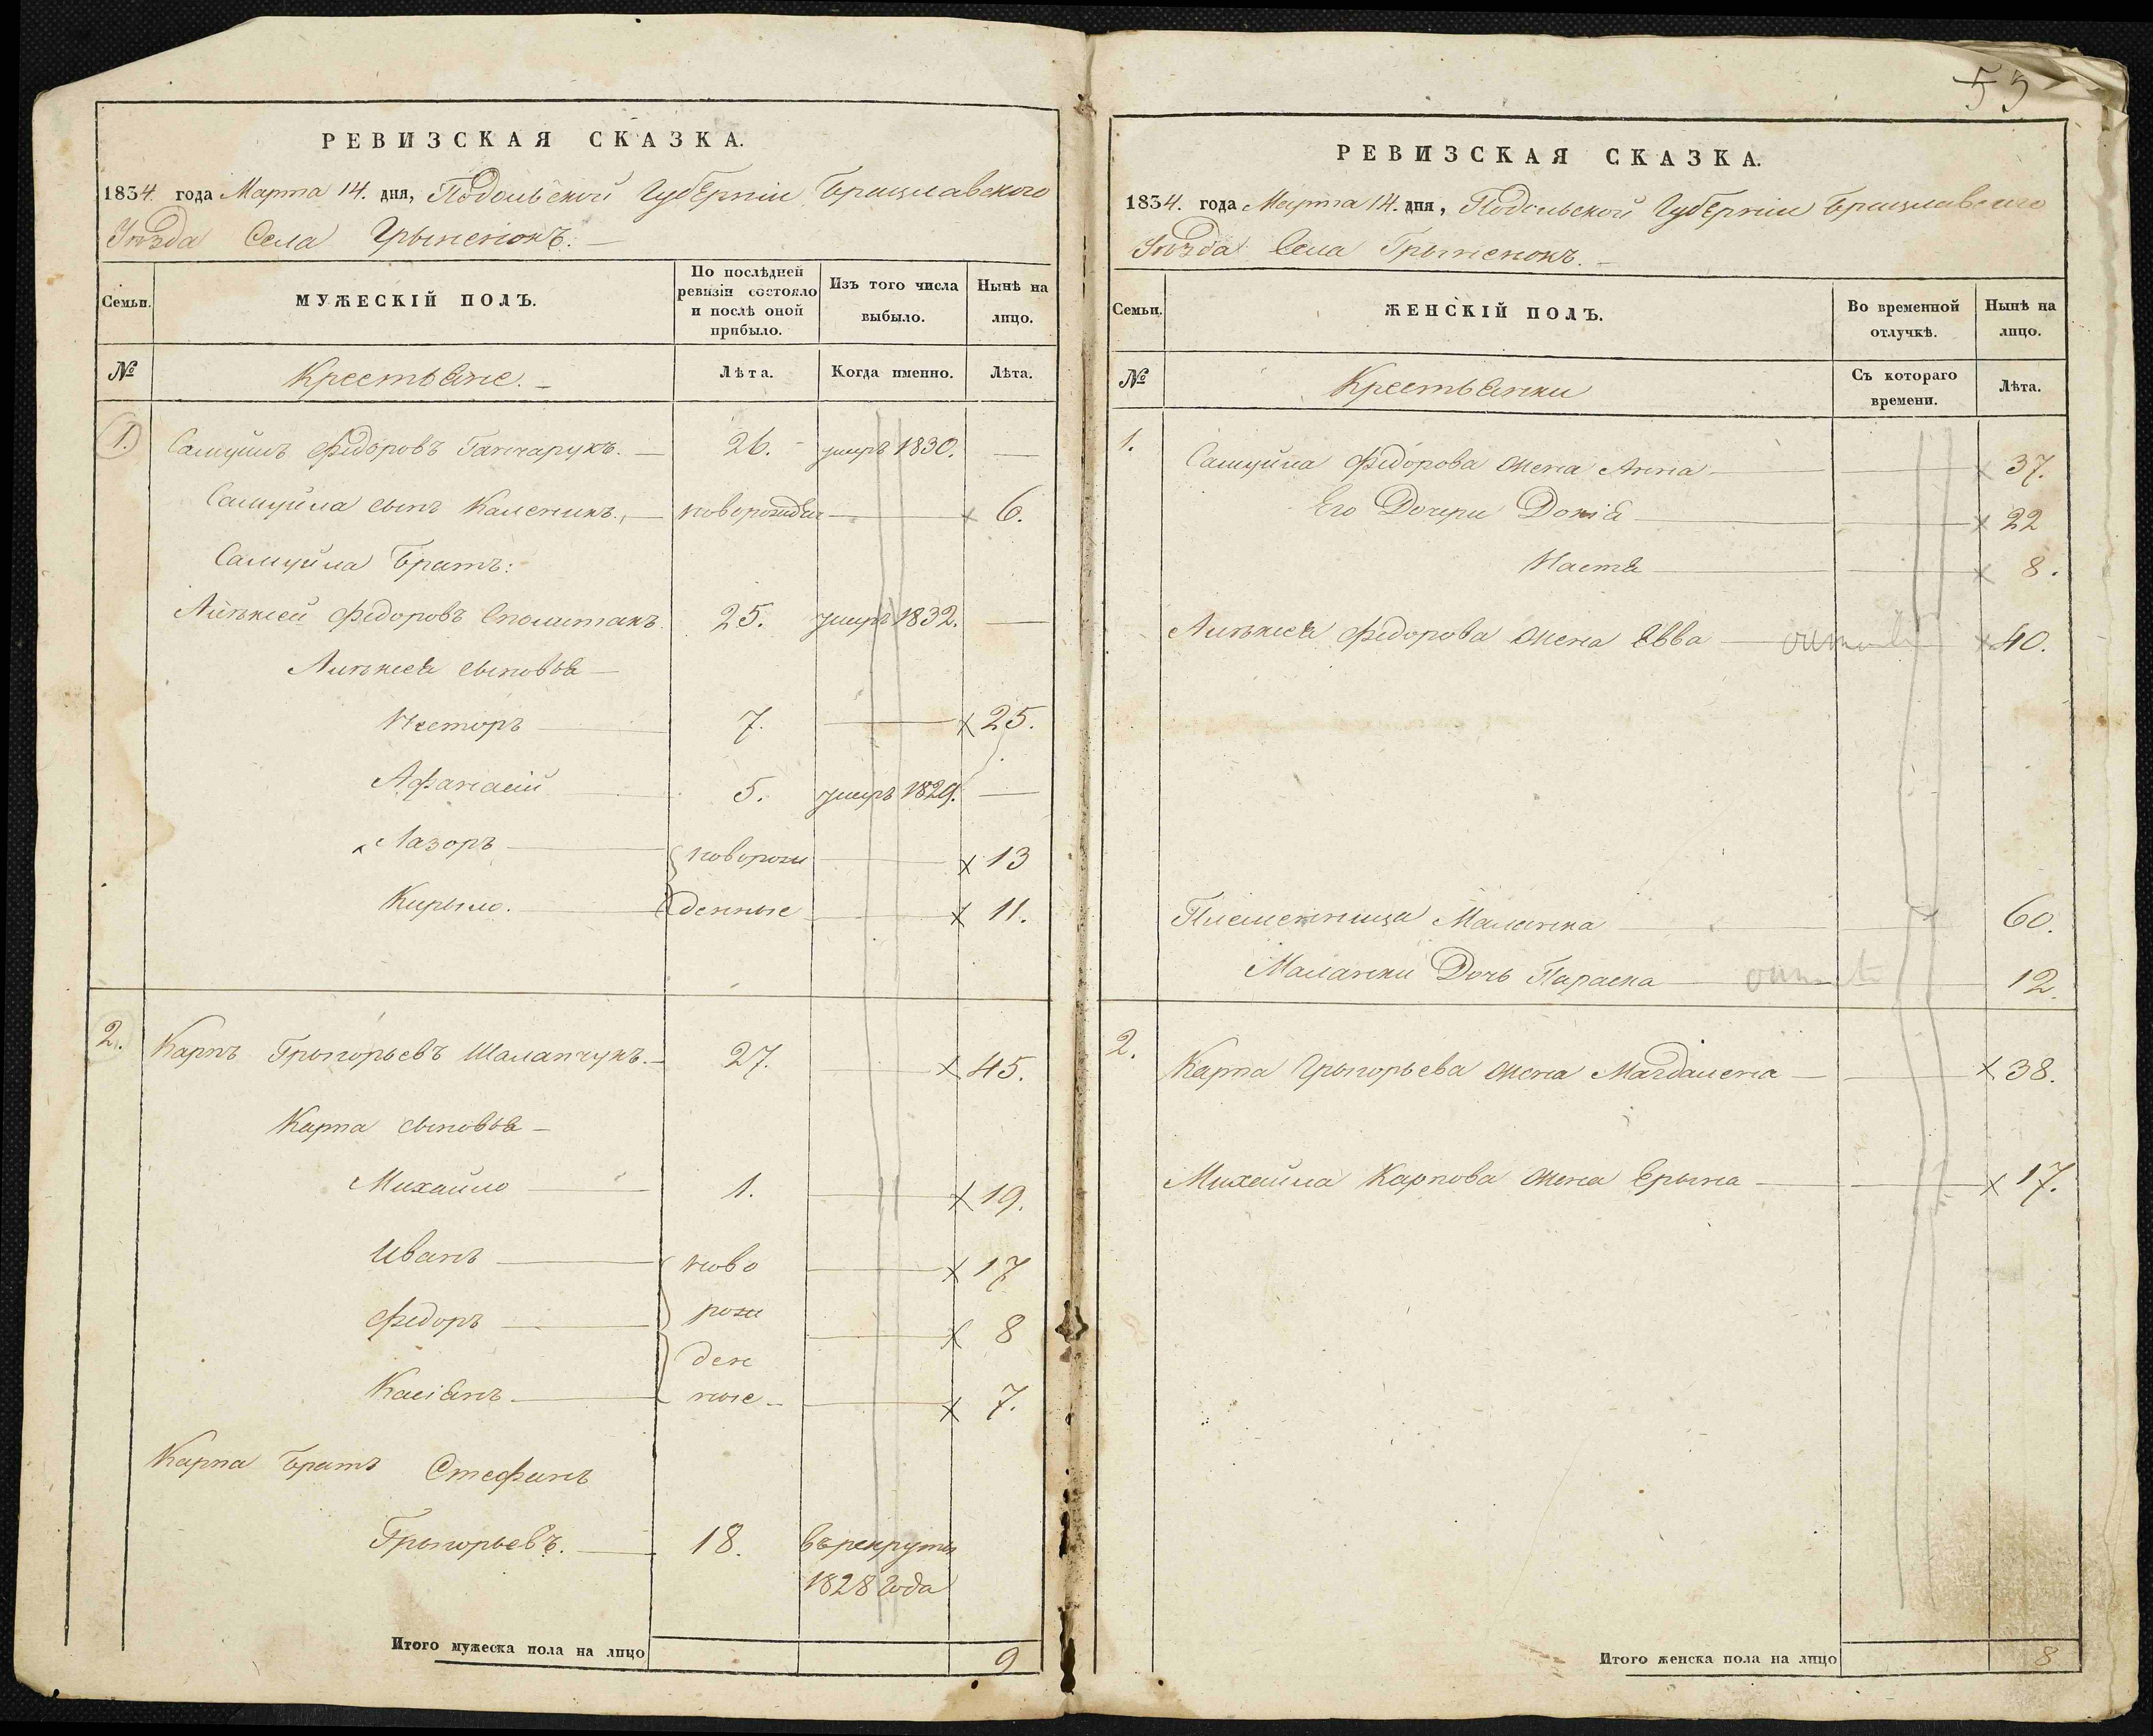 55
РЕВИЗСКАЯ СКАЗКА.
1834. года Марта 14. дня, Подольской Губерніи Брацлавского
Уѣзда Села Грыненокъ. —
Семьи.
МУЖЕСКІЙ ПОЛЪ.
По послѣдней
ревизіи состояло
и послѣ оной
прибыло.
Изъ того числа
выбыло.
Нынѣ на
лицо.
№
Крестьяне. —
Лѣта.
Когда именно.
Лѣта.
1. Самуилъ Федоровъ Ганчарукъ. — 26. умеръ 1830. —
Самуйла сынъ Каленикъ. — новорожден — х 6.
Самуйла Братъ:
Алѣксей Федоровъ 25. умеръ 1832. —
Алѣксея сыновья —
Несторъ — 7. — х 25.
Афанасій 5. умеръ 1829. —
Лазоръ — новорож — х 13
Кирыло. — денные — х 11.
2. Карпъ Грыгорьевъ Шаланчукъ. — 27. — х 45.
Карпа сыновья —
Михайло — 1. — х 19.
Иванъ — ново — х 17
Федоръ — рож — х 8
ден
Касіянъ — ные — х 7.
Карпа Братъ Стефанъ
Грыгорьевъ. — 18. въ рекруты
1828 года
Итого мужеска пола на лицо 9
РЕВИЗСКАЯ СКАЗКА.
1834. года Марта 14. дня, Подольской Губерніи Брацлавского
Уѣзда Села Грыненокъ. —
Семьи.
ЖЕНСКІЙ ПОЛЪ.
Во временной
отлучкѣ.
Нынѣ на
лицо.
№
Крестьянки
Съ котораго
времени.
Лѣта.
1. Самуйла Федорова жена Анна — х 37.
Его Дочери Докія — х 22
Настя — х 8.
Алѣксея Федорова жена Евва — х 40.
Племенница Маланка — 60.
Маланки Дочь Параска — 12.
2. Карпа Грыгорьева жена Магдалена — х 38.
Михайла Карпова жена Ерына — х 17.
Итого женска пола на лицо 8